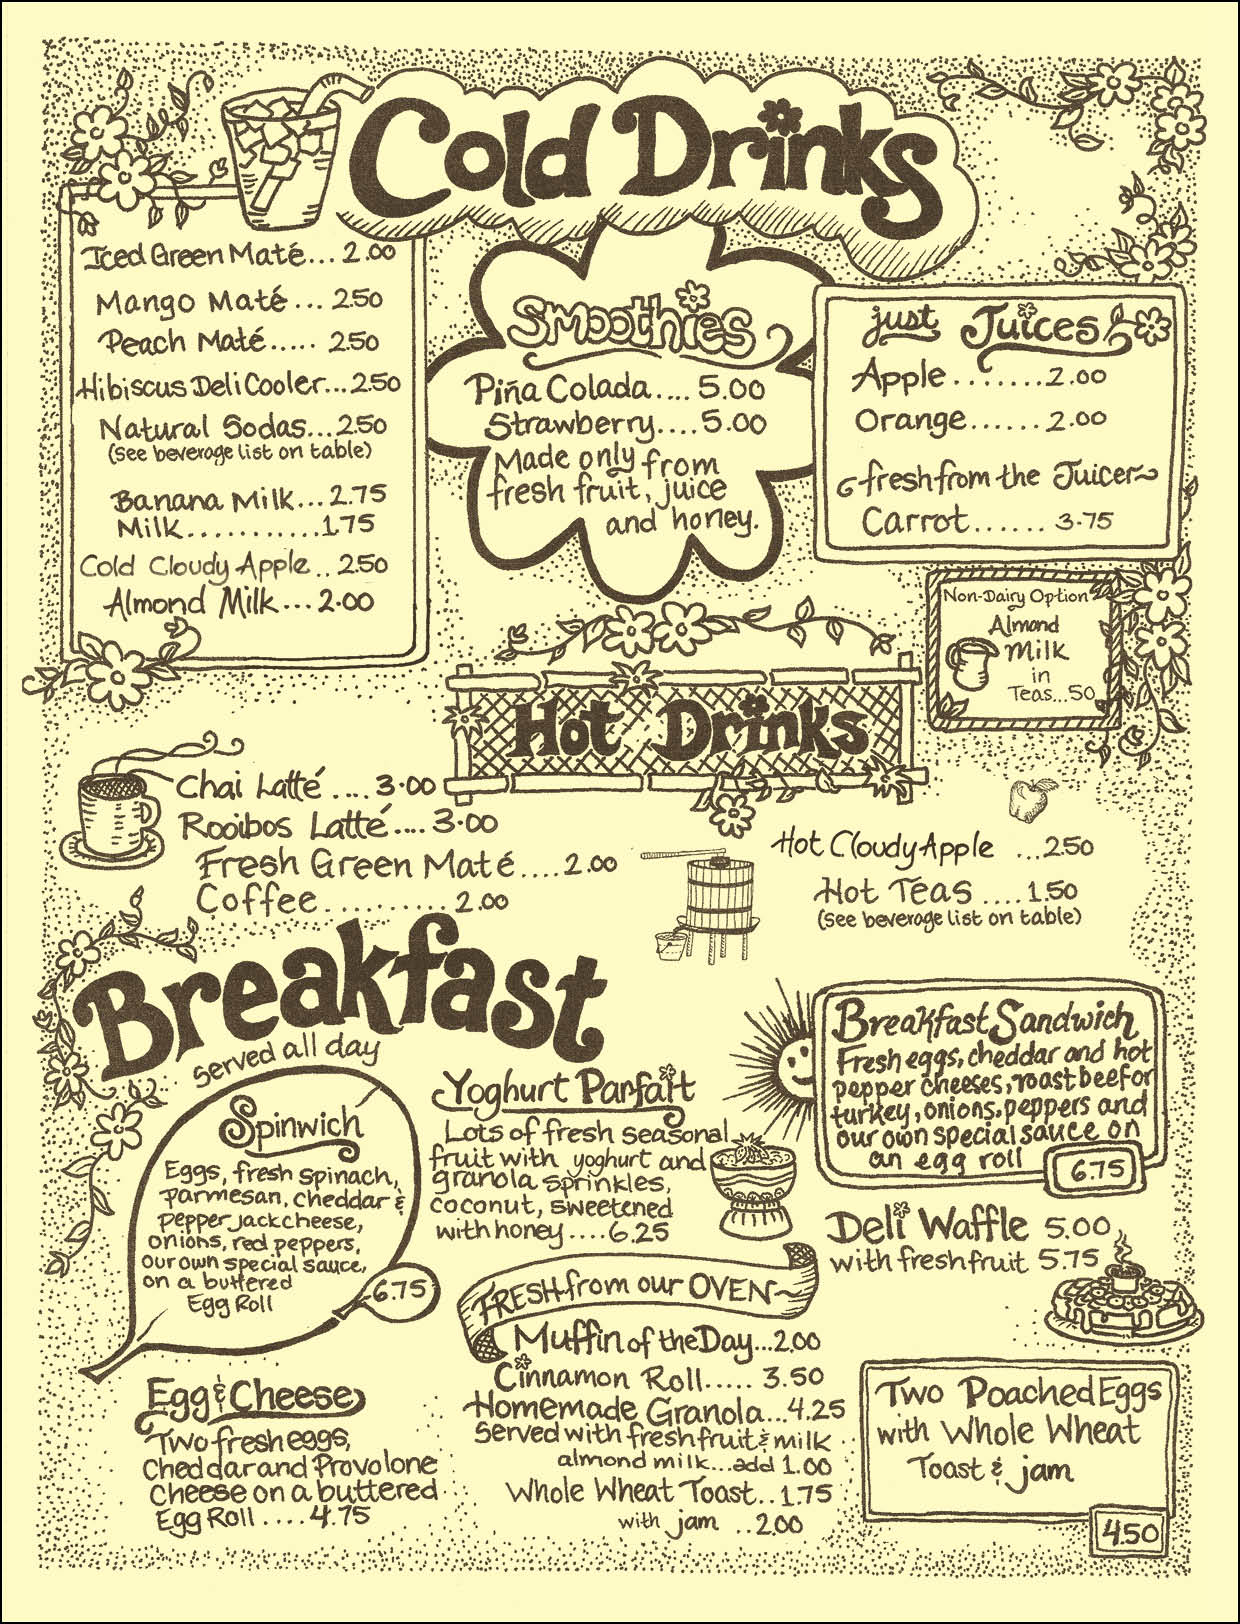 Cold Drinks
Iced Green Maté... 2.00
Mango Maté ... 2.50
Peach Maté..... 2.50
Hibiscus Deli Cooler... 2.50
Natural Sodas... 2.50
(see beverage list on table)
Banana Milk... 2.75
Milk...........1.75
Cold Cloudy Apple .. 2.50
Almond Milk... 2.00
Smoothies
Piña Colada.... 5.00
Strawberry.... 5.00
Made only from
fresh fruit, juice
and honey.
just Juices
Apple........2.00
Orange.......2.00
fresh from the Juicer
Carrot...... 3.75
Non-Dairy Option
Almond
Milk
in
Teas...50
Hot Drinks
Chai Latté .... 3.00
Rooibos Latté.... 3.00
Fresh Green Maté....2.00
Coffee.......... 2.00
Hot Cloudy Apple ...2.50
Hot Teas ....1.50
(see beverage list on table)
Breakfast
served all day
Spinwich
Eggs, fresh spinach,
parmesan, cheddar &
pepper jack cheese,
onions, red peppers,
our own special sauce,
on a buttered
Egg Roll
6.75
Egg & Cheese
Two fresh eggs,
Cheddar and Provolone
cheese on a buttered
Egg Roll .... 4.75
Yoghurt Parfait
Lots of fresh seasonal
fruit with yoghurt and
granola sprinkles,
coconut, sweetened
with honey....6.25
FRESH from our OVEN
Muffin of the Day...2.00
Cinnamon Roll..... 3.50
Homemade Granola...4.25
served with fresh fruit & milk
almond milk...add 1.00
Whole Wheat Toast.. 1.75
with jam ..2.00
Breakfast Sandwich
Fresh eggs, cheddar and hot
pepper cheeses, roast beef or
turkey, onions, peppers and
our own special sauce on
an egg roll
6.75
Deli Waffle 5.00
with fresh fruit 5.75
Two Poached Eggs
with Whole Wheat
Toast & jam
4.50